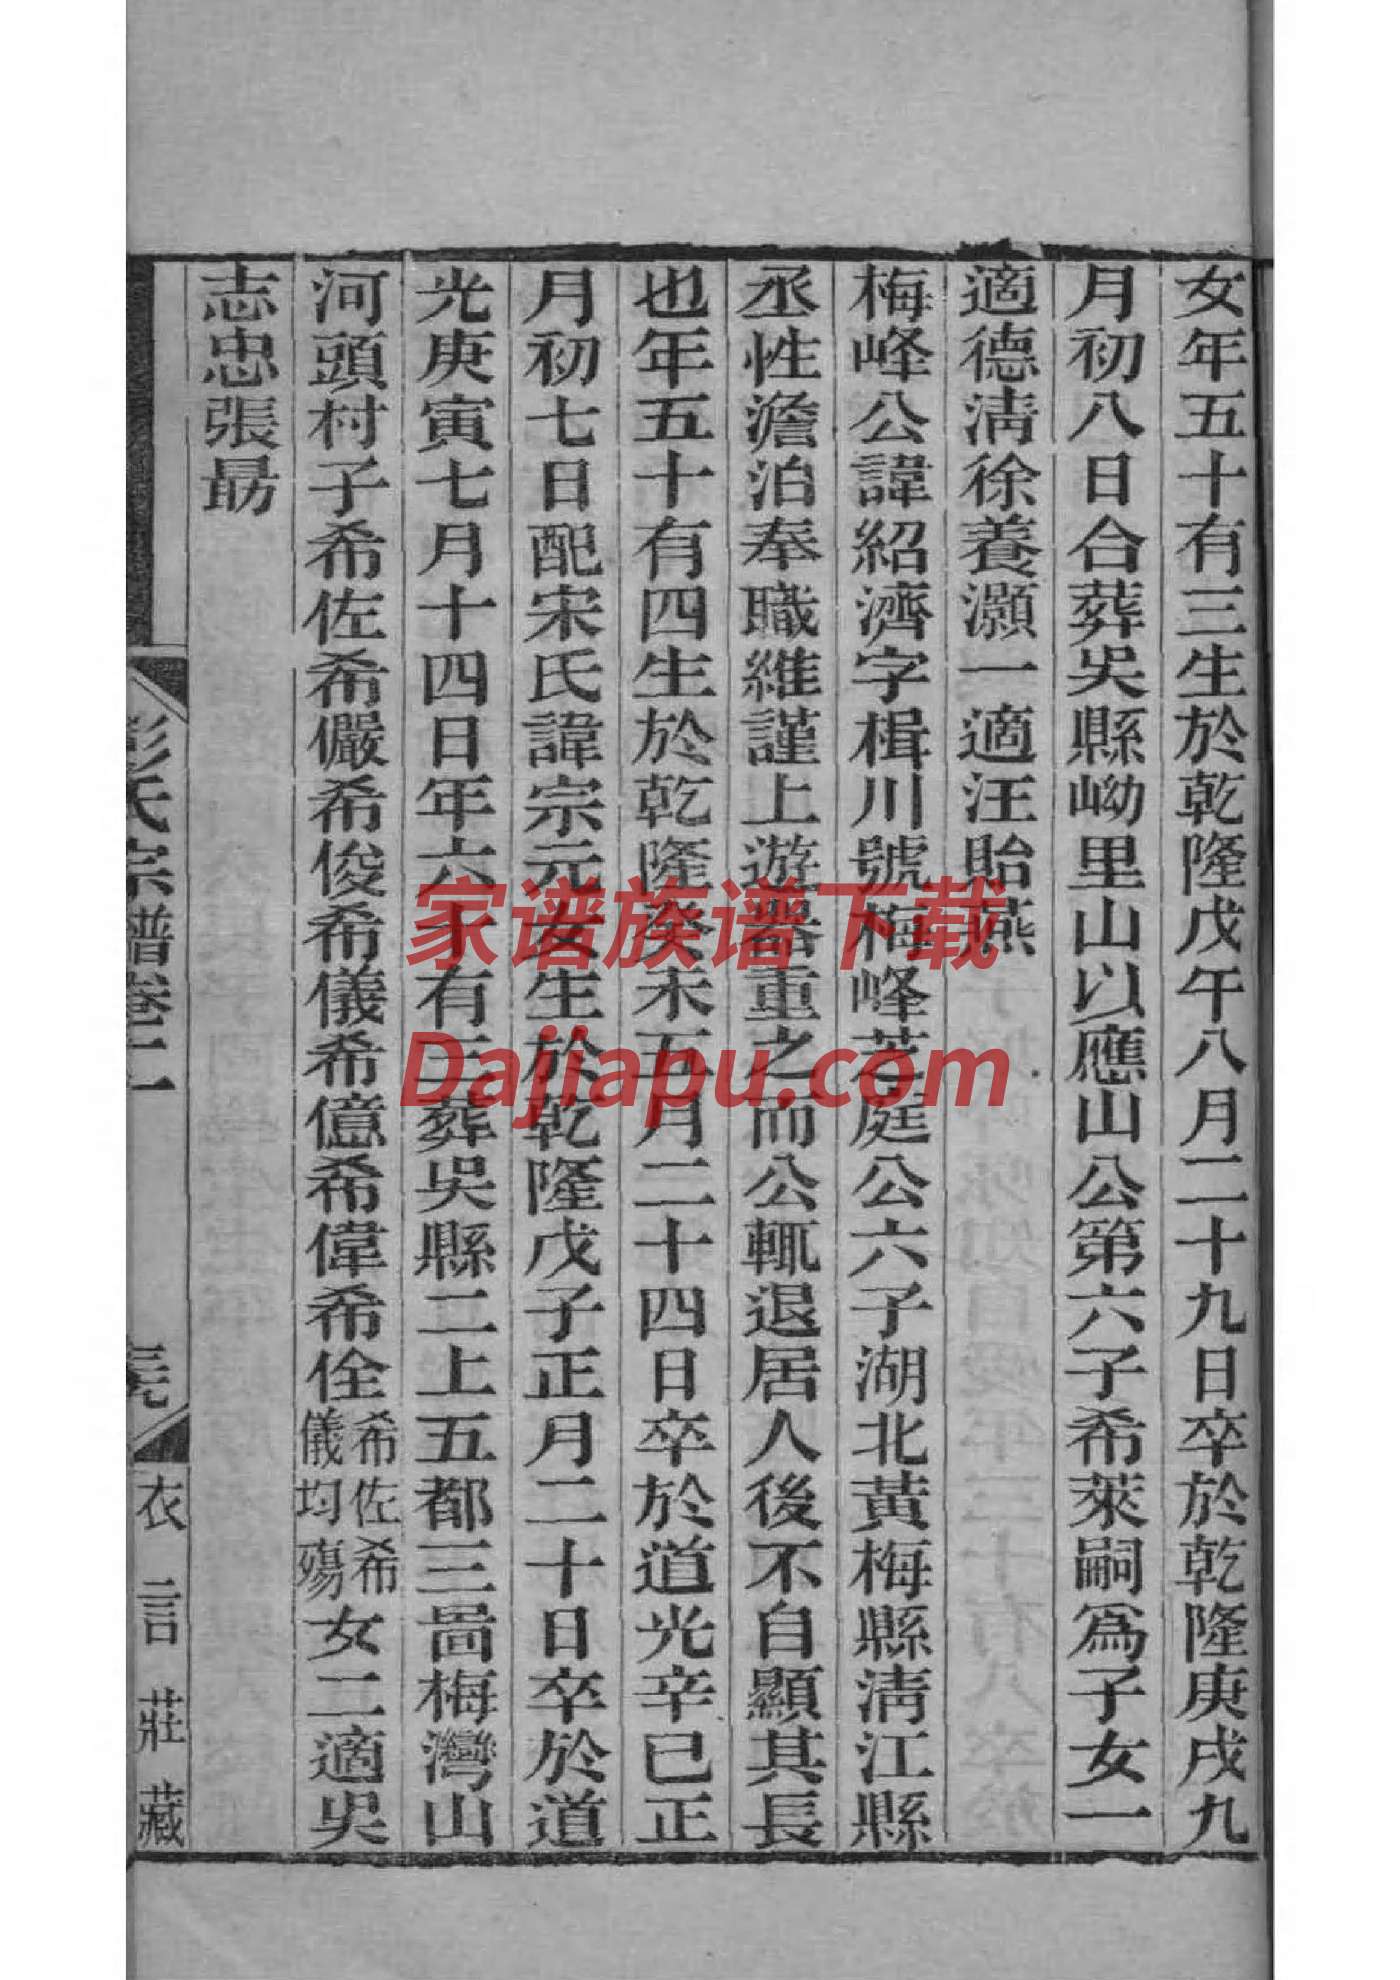 女年五十有三生於乾隆戊午八月二十九日卒於乾隆庚戌九
月初八日合葬吳縣㘭里山以應山公第六子希萊嗣爲子女一
適德淸徐養灝一適汪貽燕
梅峰公諱紹濟字楫川號梅峰芝庭公六子湖北黃梅縣淸江縣
丞性澹泊奉職維謹上遊器重之而公輒退居人後不自顯其長
也年五十有四生於乾隆癸未五月二十四日卒於道光辛巳正
月初七日配宋氏諱宗元女生於乾隆戊子正月二十日卒於道
光庚寅七月十四日年六十有三葬吳縣二上五都三啚梅灣山
河頭村子希佐希儼希俊希儀希億希偉希佺
希佐希
儀均殤
女二適吳
志忠張勗
彭氏宗譜卷二
衣言莊藏
家谱族谱下载
Dajiapu.com